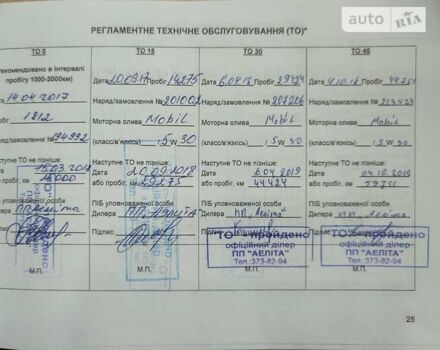 auto RIA
РЕГЛАМЕНТНЕ ТЕХНІЧНЕ ОБСЛУГОВУВАННЯ (ТО)*
ТО 0
Рекомендовано в інтервалі
пробігу 1000-2000км)
14.04.2017
1812
194992
Наступне ТО не пізніше:
15.03.2018
15000
ПІБ уповноваженої особи
ПП Аеліта
М.П.
ТО 15
Дата 20.09.17 Пробіг 14275
Наряд/замовлення № 201002
Моторна олива Mobil
(клас/в'язкість) 5 W 30
Наступне ТО не пізніше:
Дата 20.09.2018
або пробіг, км 29275
ПІБ уповноваженої особи
Дилера ПП "Аеліта"
Підпис
М.П.
ТО 30
Дата 6.04.18 Пробіг 29424
Наряд/замовлення № 207206
Моторна олива Mobil
(клас/в'язкість) 5 W 30
Наступне ТО не пізніше:
Дата 6.04.2019
або пробіг, км 44424
ПІБ уповноваженої особи
Дилера ПП "Аеліта"
Підпис
ТО - пройдено
офіційний ділер
ПП "АЕЛІТА"
Тел.:373-82-94
М.П.
ТО 45
Дата 4.10.18 Пробіг 44751
Наряд/замовлення №
Моторна олива Mobil
(клас/в'язкість) 5 W 30
Наступне ТО не пізніше:
Дата 04.10.2019
або пробіг, км 59751
ПІБ уповноваженої особи
Дилера ПП "Аеліта"
Підпис
ТО - пройдено
офіційний ділер
ПП "АЕЛІТА"
Тел.:373-82-94
М.П.
25